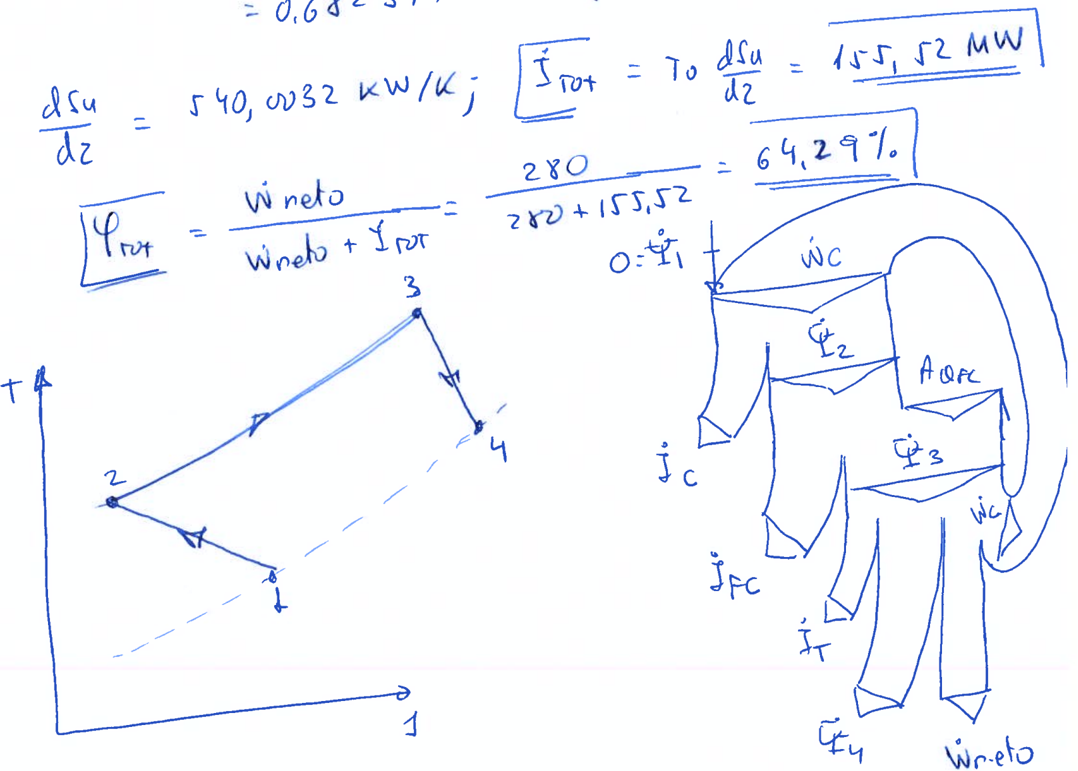 = 0,682
dSu/dz = 540,0032 KW/K; İTOT = To dSu/dz = 155,52 MW
φTOT = Ẇneto / (Ẇneto + İTOT) = 280 / (280 + 155,52) = 64,29%
0=Ψ̇1
ẆC
Ψ̇2
AQFC
Ψ̇3
İC
ẆC
İFC
İT
Ψ̇4
Ẇneto
T
3
4
2
1
s